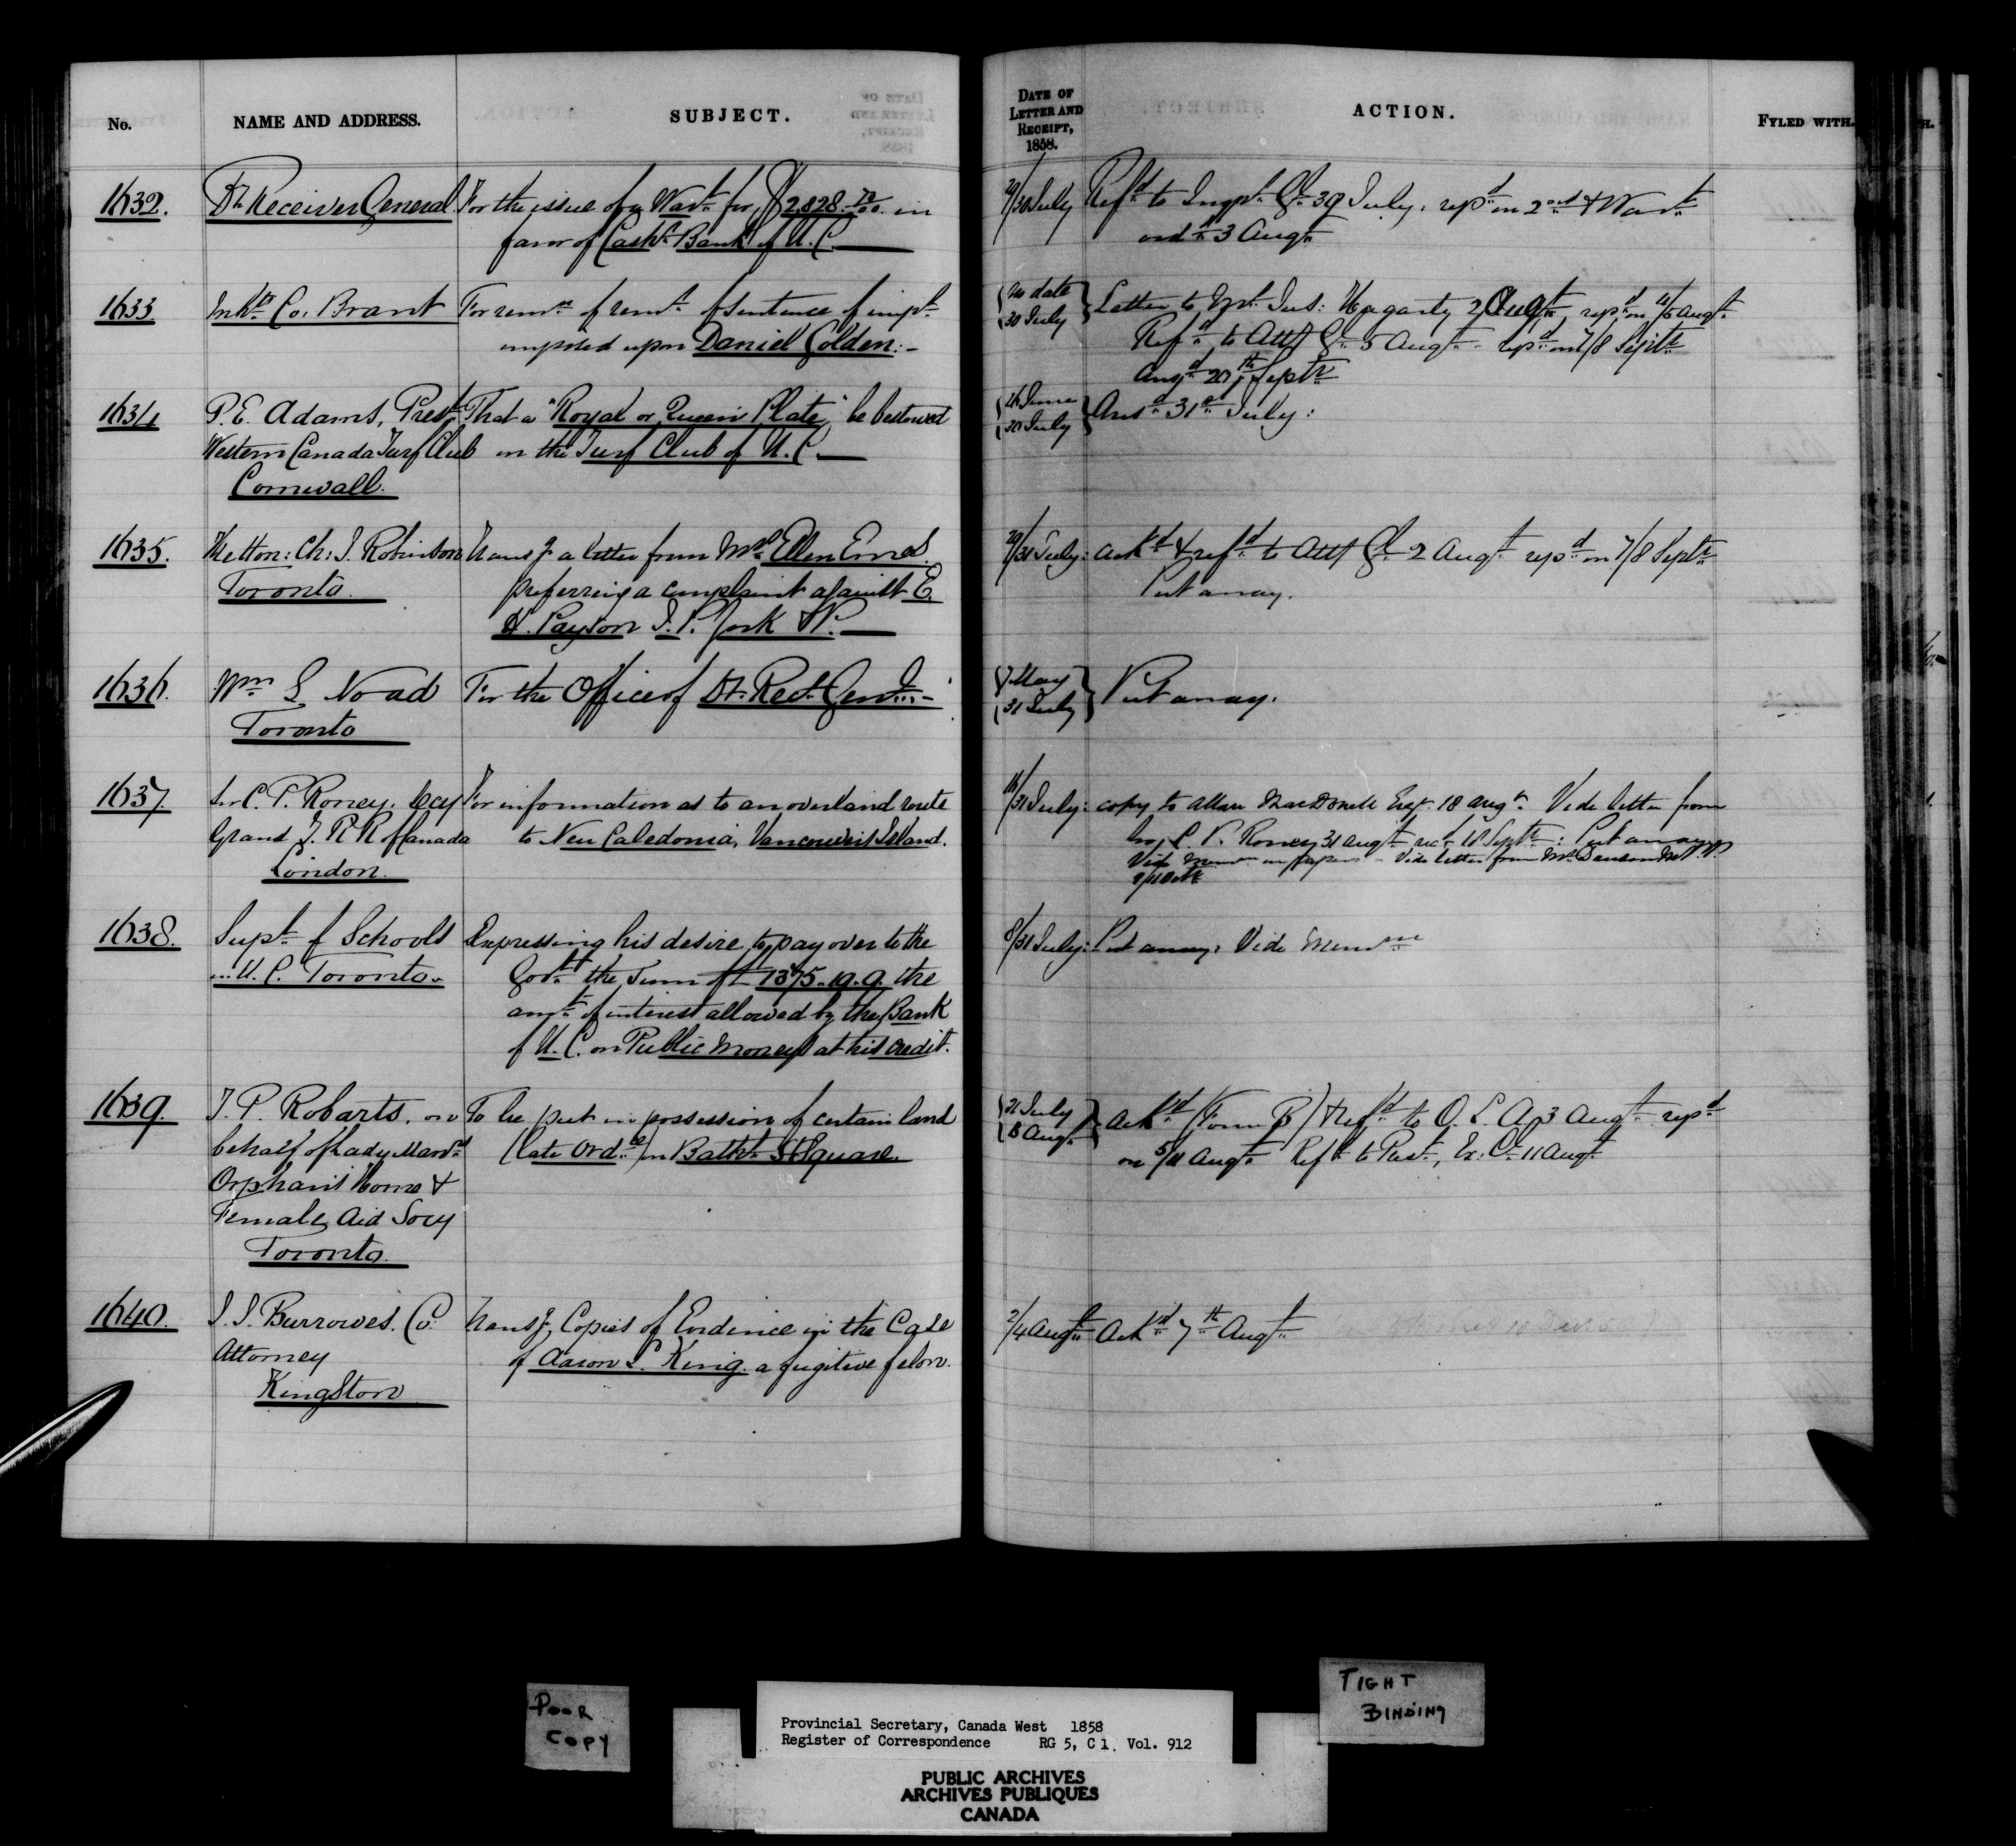 No.
NAME AND ADDRESS.
SUBJECT.
DATE OF
LETTER AND
RECEIPT,
1858.
ACTION.
FYLED WITH.
1632.
Dy. Receiver General.
For the issue of a Wart. for $2828. in
favor of Cashr. Bank of U.C.
29/30 July
Refd. to Inspr. Gl. 30 July, repd. on 2nd & Wart.
ord. 3 Augt.
1633
Inhts. Co. Brant
For remn. of remr. of sentence of impt.
imposed upon Daniel Golden:-
no date
30 July
Letter to Just: Hagarty 2 Augt. repd. on 4/5 Augt.
Refd. to Atty Gl. 5 Augt. repd. on 7/8 Septr.
Ansd. 20th Septr.
1634
P.E. Adams, Prest.
Western Canada Turf Club
Cornwall.
That a "Royal or Queen's Plate" be bestowed
on the Turf Club of U.C.
26 June
30 July
Ansd. 31st July:
1635.
The Hon: Ch: J. Robinson
Toronto.
Transg. a letter from Mrs. Ellen
preferring a complaint against E.
H. Payson J.P. York &P.
29/31 July:
Ackd. & refd. to Atty Gl. 2 Augt. repd. on 7/8 Septr.
Put away.
1636.
Wm. S. Noad
Toronto
For the Office of Dy. Rect. Genl.-
7 May
31 July
Put away.
1637.
Sir C. P. Roney. Secy
Grand T. R R of Canada
London.
For information as to an overland route
to New Caledonia, Vancouver's Island.
16/31 July:
copy to Allan MacDonell Esqr. 18 Augt. Vide letter from
C. P. Roney 31 Augt. recd. 18 Septr: Put away
Vide Memm. on papers - Vide letter from Mr.
1638.
Supt. of Schools
U.C. Toronto.
Expressing his desire to pay over to the
Govt. the Sum of £1375.19.9. the
amt. of interest allowed by the Bank
of U.C. on Public Moneys at his credit.
8/31 July:
Put away. Vide Memm
1639.
T. P. Robarts. on
behalf of Lady Man.
Orphan's Home &
Female Aid Socy
Toronto.
To be put in possession of certain land
(late Ord.) on Bathst. St Square.
31 July
3 Augt.
Ackd. (Form B) & refd. to O. L. A. 3 Augt. repd.
on 5/11 Augt. Refd. to Prest, Ex: C. 11 Augt.
1640.
J. J. Burrowes. Co.
Attorney
Kingston
Transg. Copies of Evidence in the Case
of Aaron L. King. a fugitive felon.
2/4 Augt.
Ackd. 7th Augt.
POOR
COPY
TIGHT
BINDING
Provincial Secretary, Canada West 1858
Register of Correspondence RG 5, C 1. Vol. 912
PUBLIC ARCHIVES
ARCHIVES PUBLIQUES
CANADA